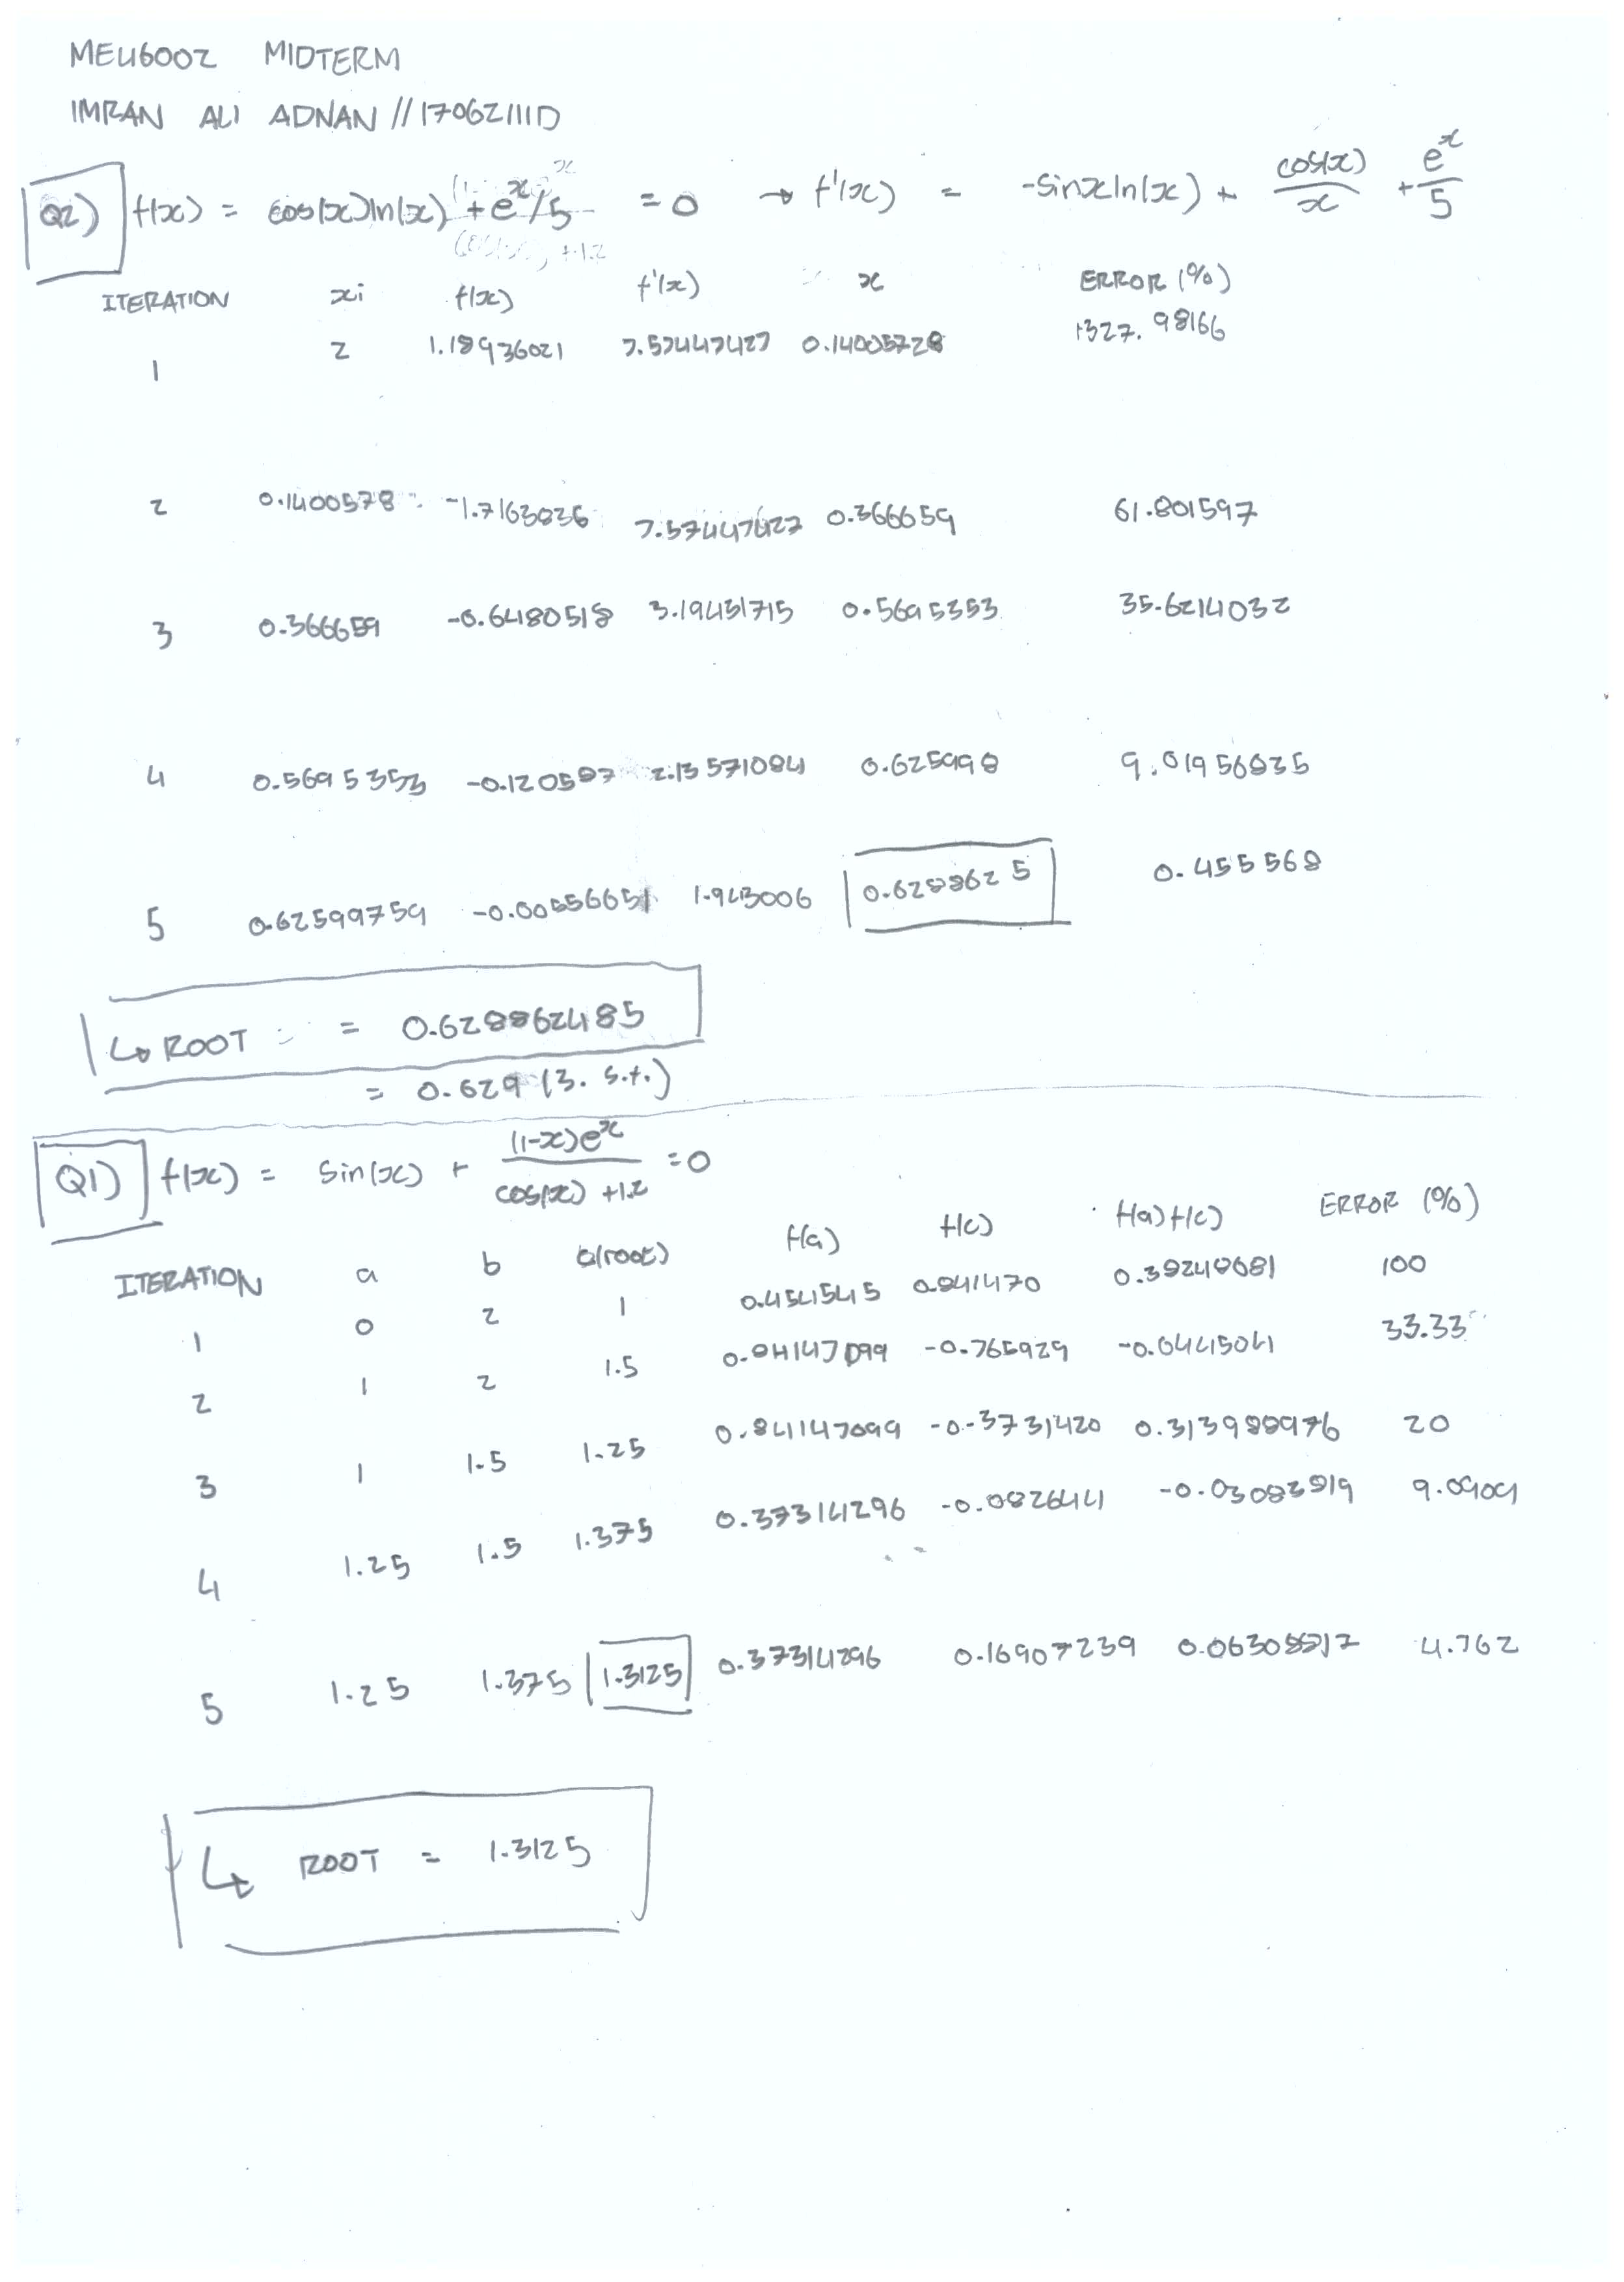 ME46002 MIDTERM
IMRAN ALI ADNAN // 17062111D
Q2) f(x) = cos(x)ln(x) + e^x/5 = 0 → f'(x) = -sinxln(x) + cos(x)/x + e^x/5
ITERATION xi f(x) f'(x) x ERROR (%)
1 2 1.18936021 7.57447427 0.14005728 1327.98166
2 0.1400578 -1.7163036 7.57447427 0.366659 61.801597
3 0.366659 -0.6480518 3.19431715 0.5695353 35.6214032
4 0.5695353 -0.120587 2.13571084 0.625998 9.01956835
5 0.62599759 -0.00556651 1.943006 0.6288625 0.455568
↳ ROOT = 0.628862485
= 0.629 (3. s.f.)
Q1) f(x) = sin(x) + (1-x)e^x / cos(x) + 1.2 = 0
ITERATION a b c(root) f(a) f(c) f(a)f(c) ERROR (%)
1 0 2 1 0.454545 0.841470 0.38248681 100
2 1 2 1.5 0.84147099 -0.765929 -0.6445041 33.33
3 1 1.5 1.25 0.84147099 -0.3731420 0.313988976 20
4 1.25 1.5 1.375 0.37314296 -0.0826441 -0.03083819 9.0909
5 1.25 1.375 1.3125 0.37314296 0.16907239 4.762
↳ ROOT = 1.3125